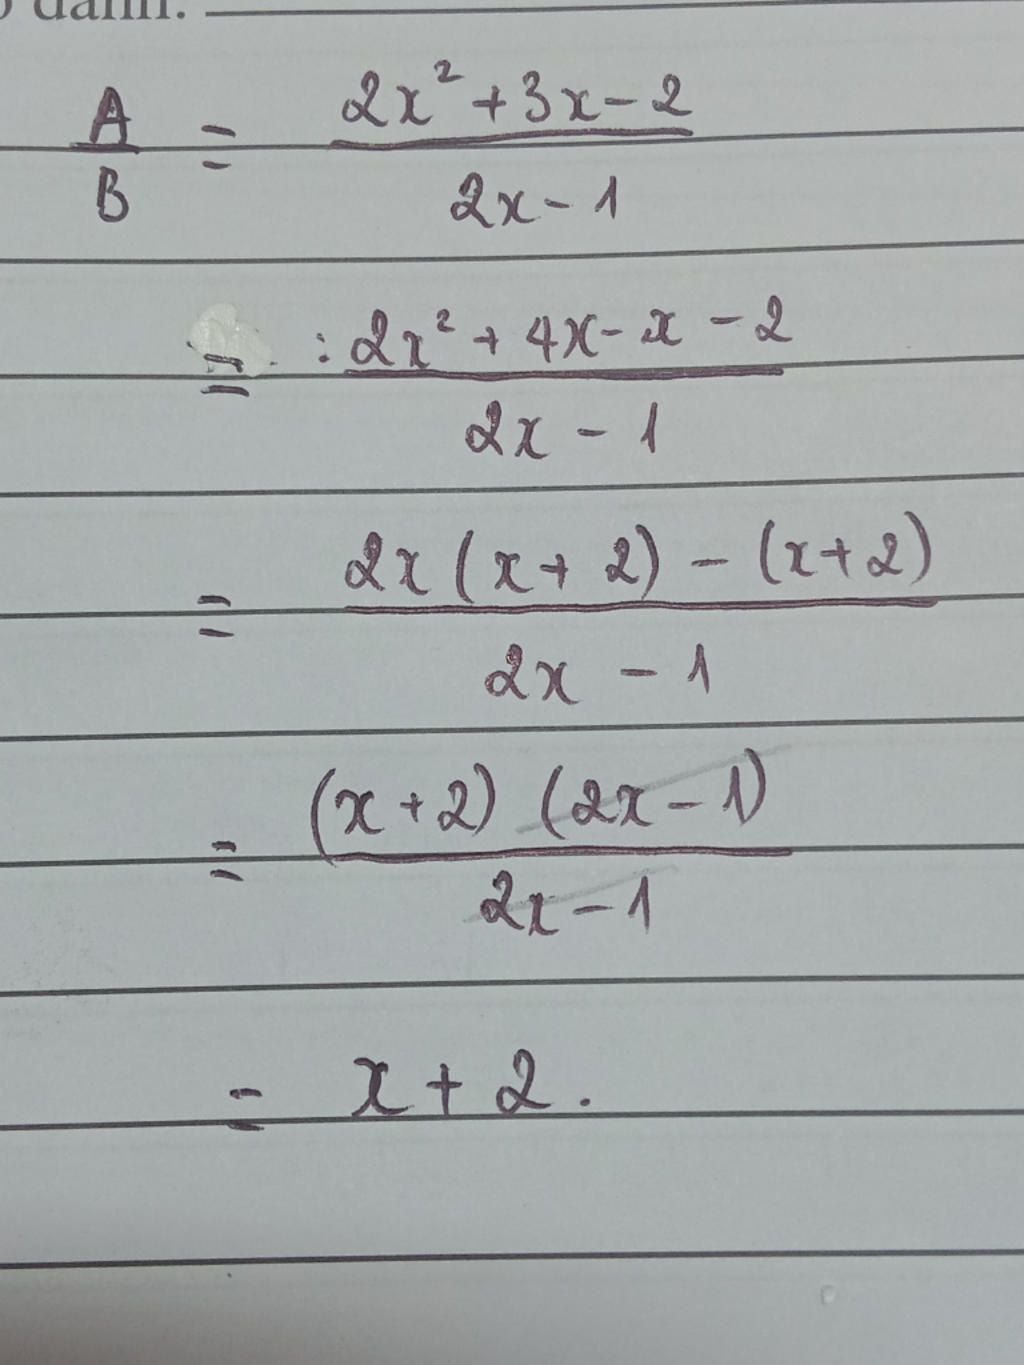 danh.
A/B = (2x² + 3x - 2)/(2x - 1)
= : (2x² + 4x - x - 2)/(2x - 1)
= (2x (x + 2) - (x + 2))/(2x - 1)
= ((x + 2) (2x - 1))/(2x - 1)
= x + 2.